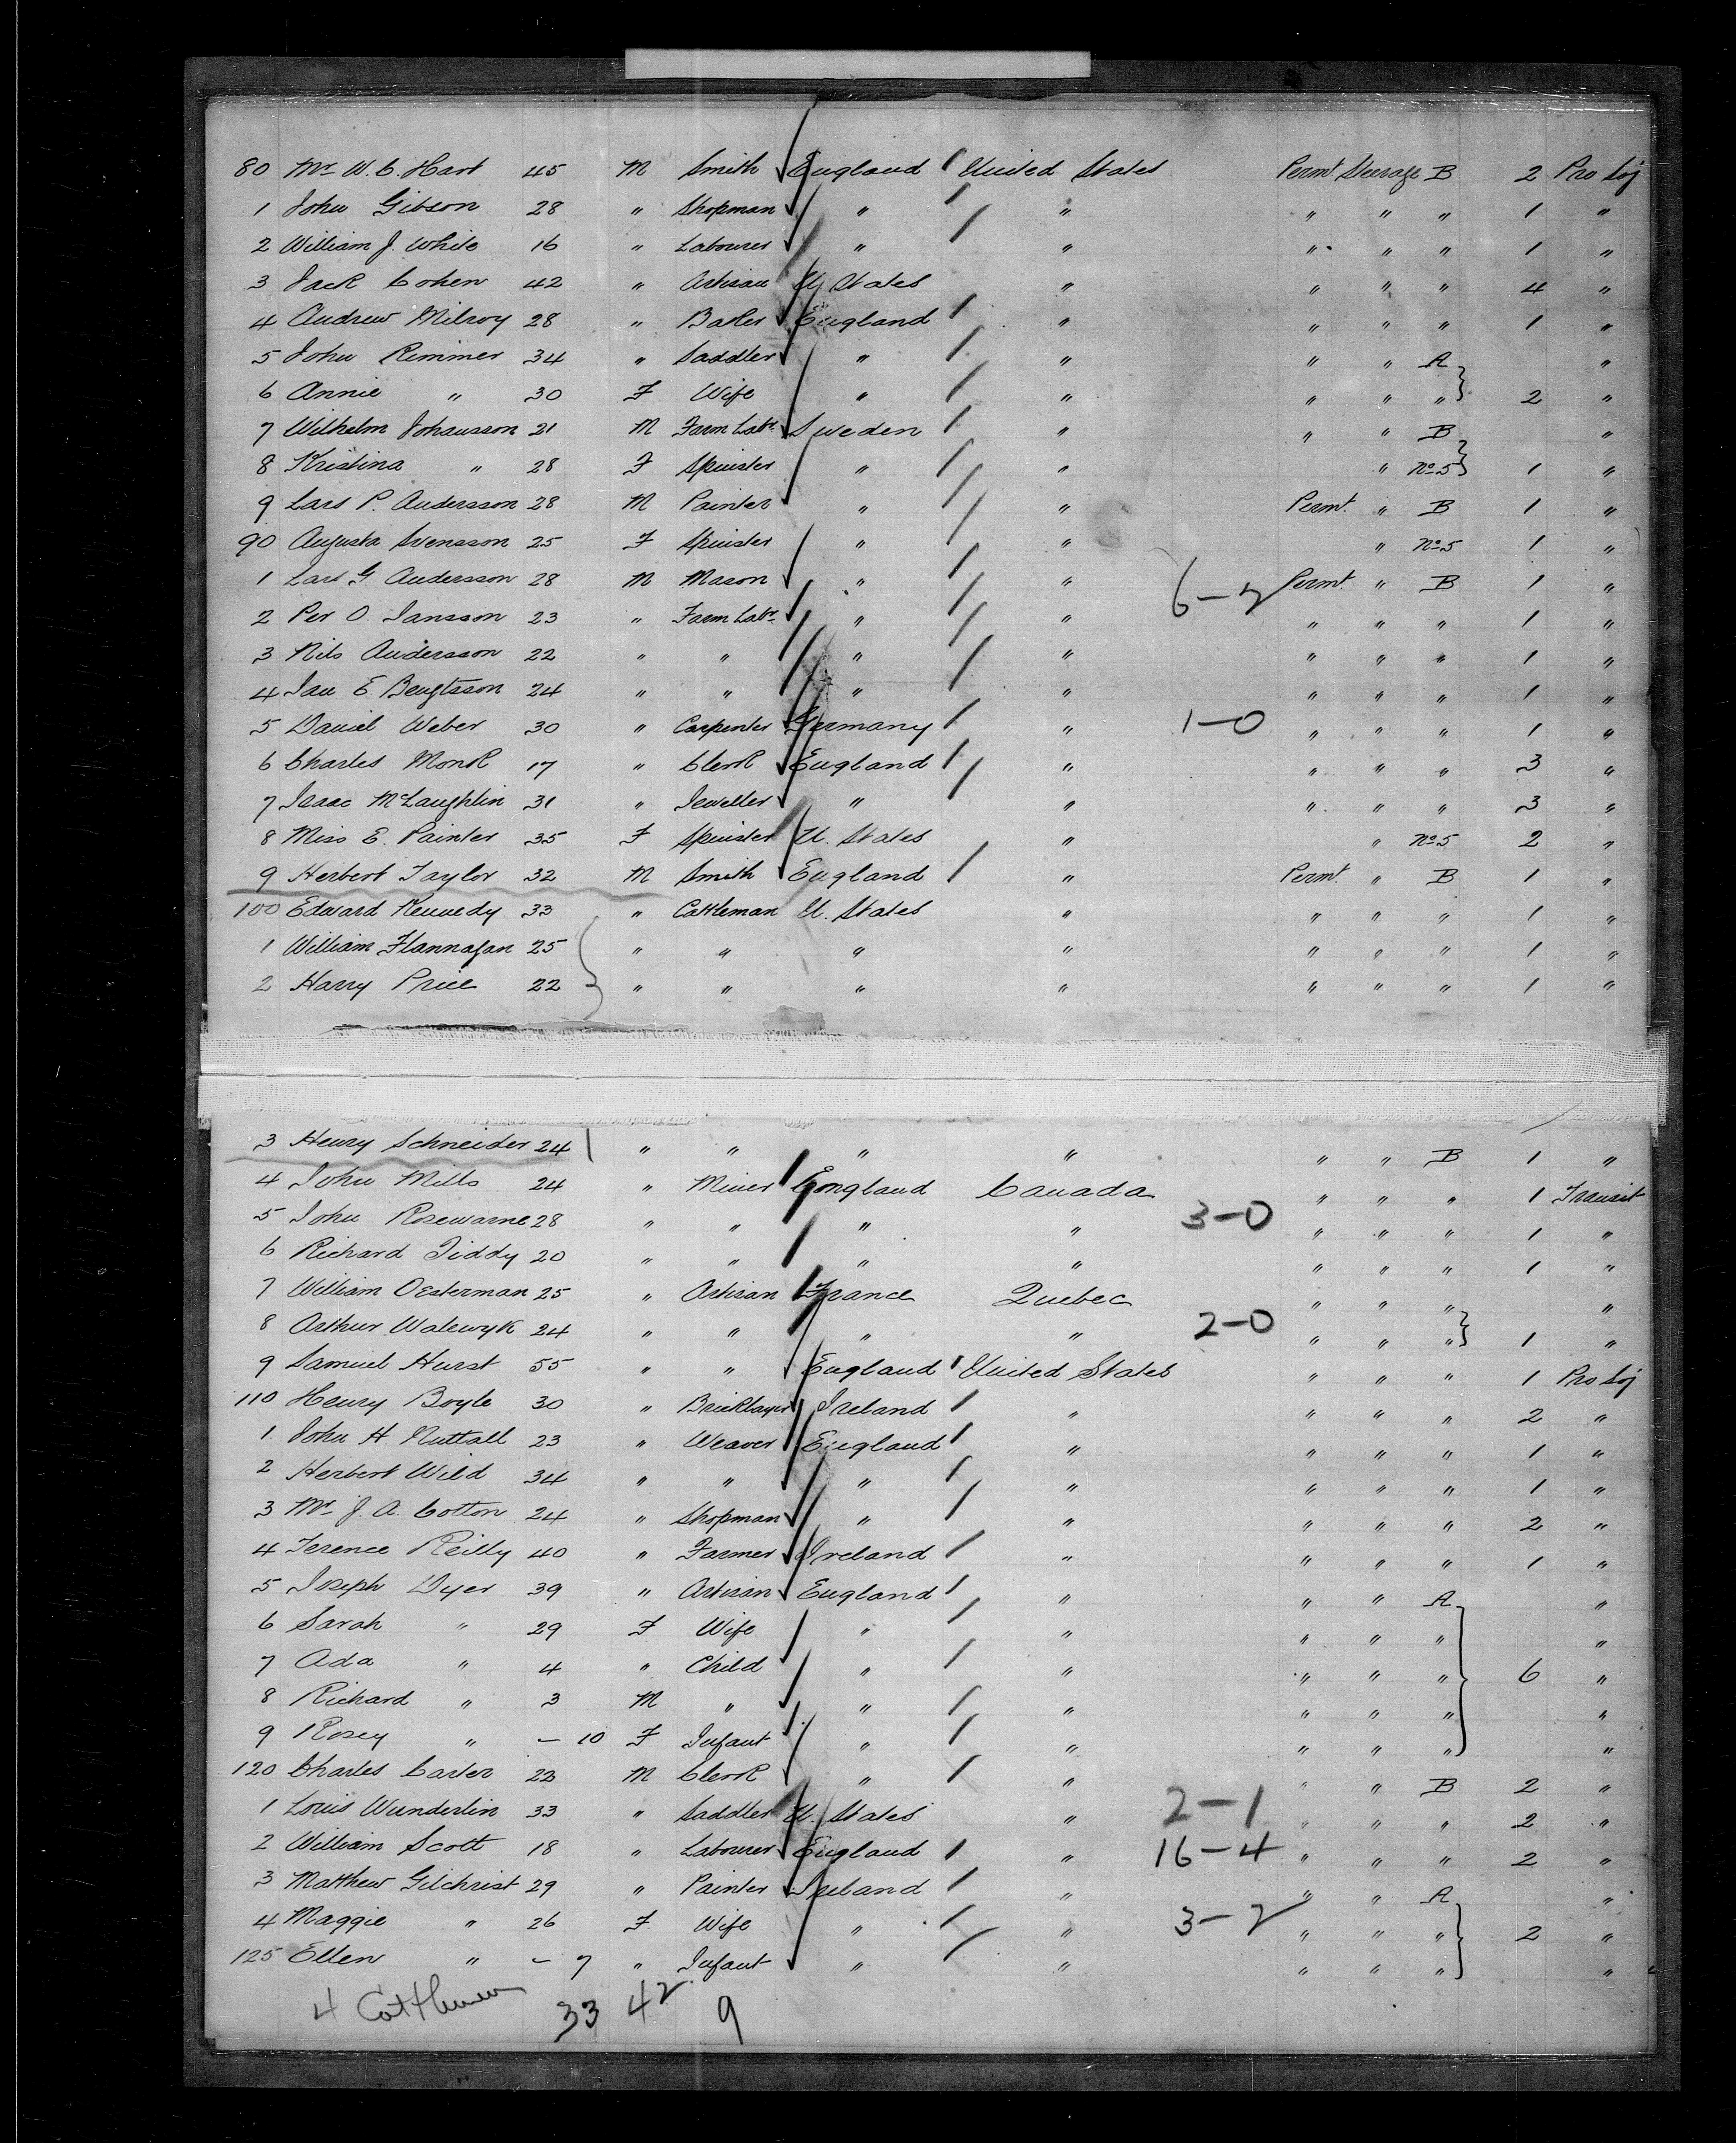 80 Mr W. C. Hart 45 M Smith England United States Permt Steerage B 2 Pro Soj
1 John Gibson 28 " Shopman " " " " " 1 "
2 William J. White 16 " Labourer " " " " " 1 "
3 Jack Cohen 42 " Artisan U. States " " " " 4 "
4 Andrew Milroy 28 " Baker England " " " " 1 "
5 John Rimmer 34 " Saddler " " " " A "
6 Annie " 30 F Wife " " " " " 2 "
7 Wilhelm Johansson 21 M Farm Labr Sweden " " " B "
8 Kristina " 28 F Spinster " " " No 5 1 "
9 Lars P. Andersson 28 M Painter " " Permt. " B 1 "
90 Augusta Svensson 25 F Spinster " " " No 5 1 "
1 Lars G. Andersson 28 M Mason " " 6-2 Permt " B 1 "
2 Per O. Jansson 23 " Farm Labr " " " " " 1 "
3 Nils Andersson 22 " " " " " " " 1 "
4 Jan E. Bengtsson 24 " " " " " " " 1 "
5 Daniel Weber 30 " Carpenter Germany " 1-0 " " " 1 "
6 Charles Monk 17 " Clerk England " " " " 3 "
7 Isaac McLaughlin 31 " Jeweller " " " " " 3 "
8 Miss E. Painter 35 F Spinster U. States " " No 5 2 "
9 Herbert Taylor 32 M Smith England " Permt. " B 1 "
100 Edward Kennedy 33 " Cattleman U. States " " " " 1 "
1 William Flannagan 25 " " " " " " " 1 "
2 Harry Price 22 " " " " " " " 1 "
3 Henry Schneider 24 " " " " " " B 1 "
4 John Mills 24 " Miner England Canada " " " 1 Transit
5 John Rosewarne 28 " " " " 3-0 " " " 1 "
6 Richard Tiddy 20 " " " " " " " 1 "
7 William Oesterman 25 " Artisan France Quebec " " " "
8 Arthur Walewyk 24 " " " " 2-0 " " " 1 "
9 Samuel Hurst 55 " " England United States " " " 1 Pro Soj
110 Henry Boyle 30 " Bricklayer Ireland " " " " 2 "
1 John H. Nuttall 23 " Weaver England " " " " 1 "
2 Herbert Wild 34 " " " " " " " 1 "
3 Mr J. A. Cotton 24 " Shopman " " " " " 2 "
4 Terence Reilly 40 " Farmer Ireland " " " " 1 "
5 Joseph Dyer 39 " Artisan England " " " A "
6 Sarah " 29 F Wife " " " " " "
7 Ada " 4 " Child " " " " " 6 "
8 Richard " 3 M " " " " " " "
9 Rosey " - 10 F Infant " " " " " "
120 Charles Carter 23 M Clerk " " " " B 2 "
1 Louis Wunderlin 33 " Saddler U. States " 2-1 " " " 2 "
2 William Scott 18 " Labourer England " 16-4 " " " 2 "
3 Matthew Gilchrist 29 " Painter Ireland " " " A "
4 Maggie " 26 F Wife " " 3-2 " " " 2 "
125 Ellen " - 7 " Infant " " " " " "
4 Cattlemen 33 42 9